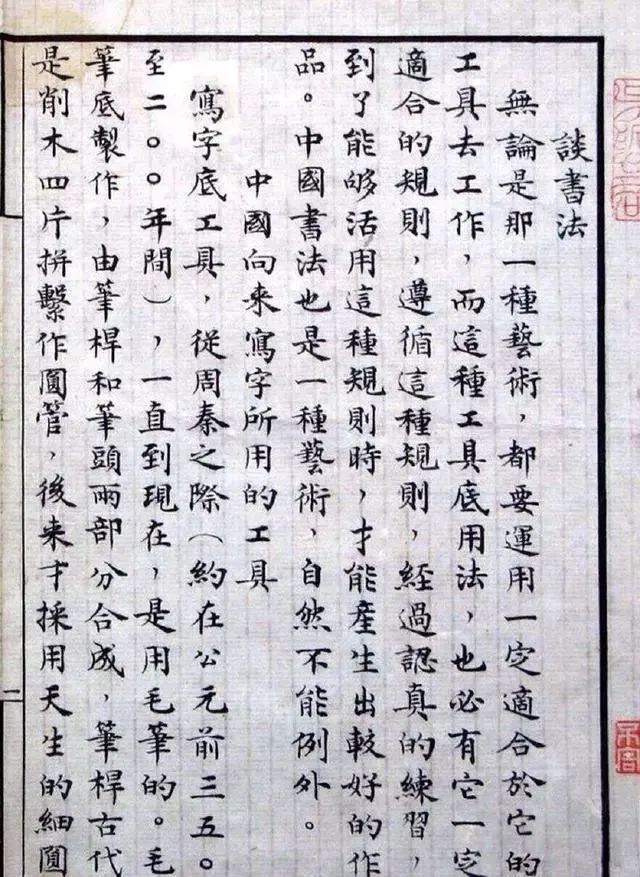 談書法
無論是那一種藝術，都要運用一定適合於它的
工具去工作，而這種工具底用法，也必有它一定
適合的規則，遵循這種規則，經過認真的練習，
到了能够活用這種規則時，才能產生出較好的作
品。中國書法也是一種藝術，自然不能例外。
中國向来寫字所用的工具
寫字底工具，從周秦之際（約在公元前三五〇
至二〇〇年間），一直到現在，是用毛筆的。毛
筆底製作，由筆桿和筆頭兩部分合成，筆桿古代
是削木四片拼繫作圓管，後来才採用天生的細圓
二